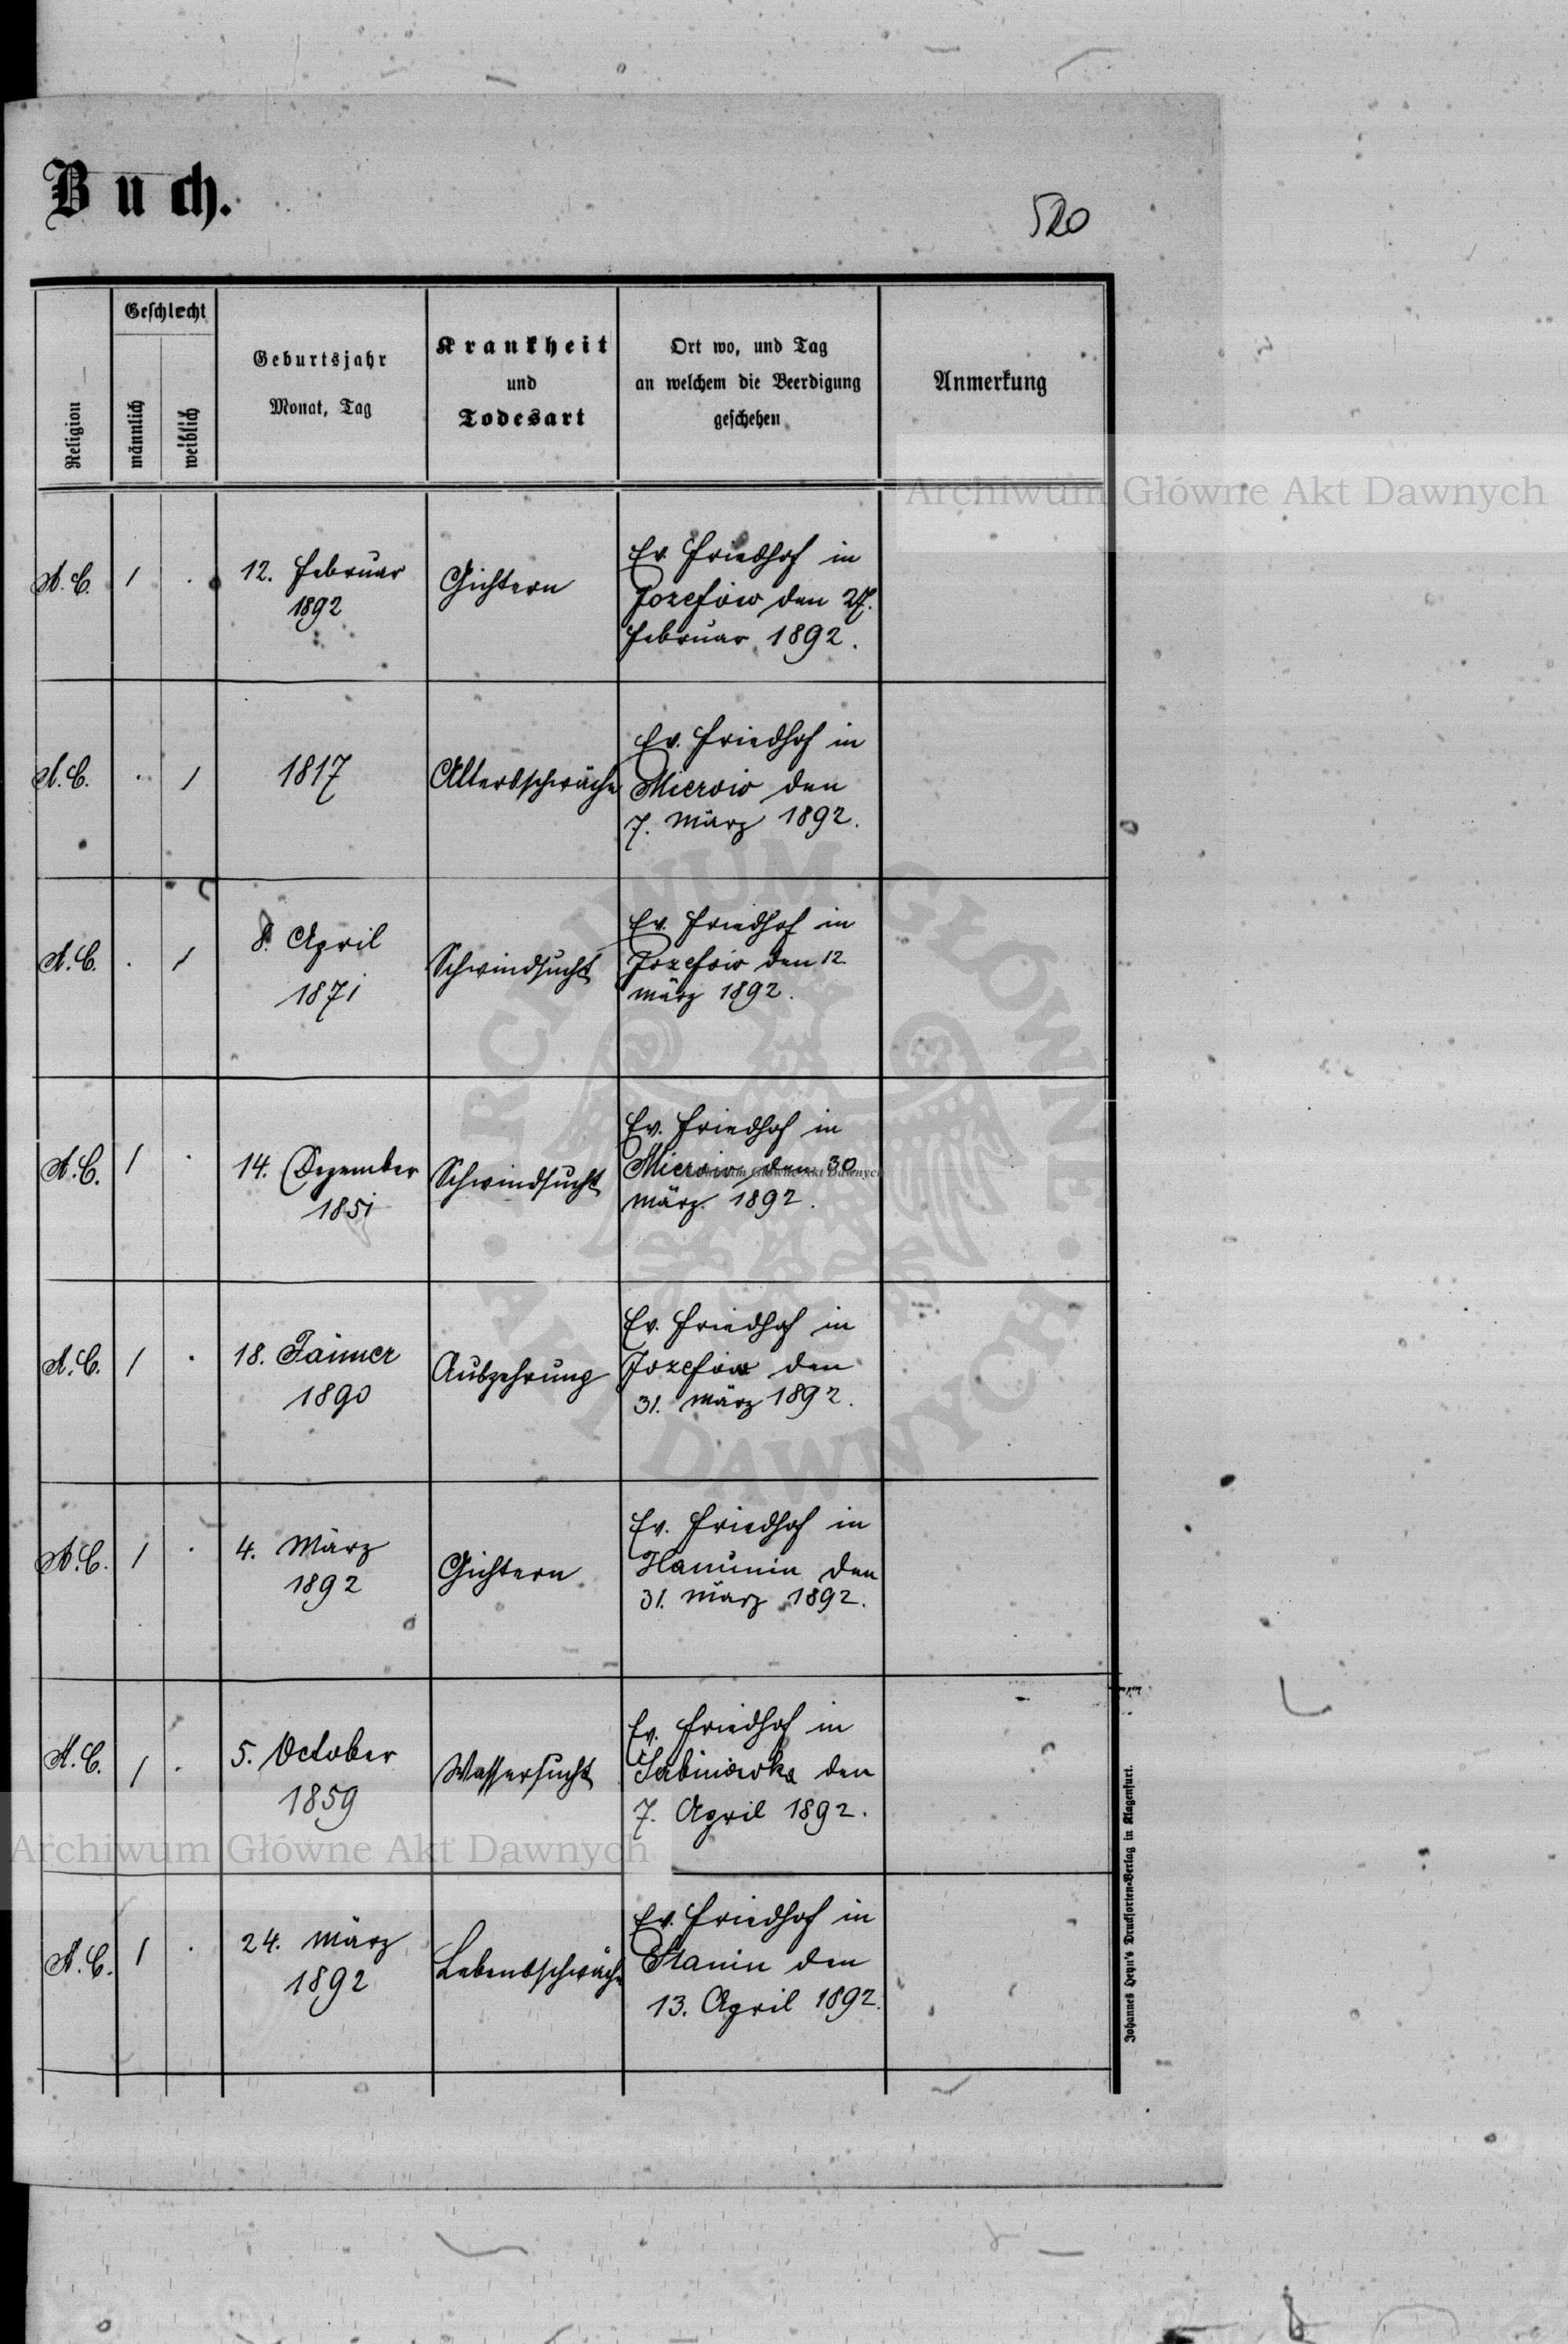 Buch.
520
Religion
Geschlecht
männlich
weiblich
Geburtsjahr
Monat, Tag
Krankheit
und
Todesart
Ort wo, und Tag
an welchem die Beerdigung
geschehen
Anmerkung
A.C. 1 .
12. Februar
1892
Gichtern
Ev. Friedhof in
Jozefów den 27.
Februar 1892.
A.C. . 1
1817
Altersschwäche
Ev. Friedhof in
Mierów den
7. März 1892.
A.C. . 1
8. April
1871
Schwindsucht
Ev. Friedhof in
Jozefów den 12.
März 1892.
A.C. 1 .
14. Dezember
1851
Schwindsucht
Ev. Friedhof in
Mierów den 30
März 1892.
A.C. 1 .
18. Jänner
1890
Auszehrung
Ev. Friedhof in
Jozefów den
31. März 1892.
A.C. 1 .
4. März
1892
Gichtern
Ev. Friedhof in
Hanunin den
31. März 1892.
A.C. 1 .
5. October
1859
Wassersucht
Ev. Friedhof in
Sabinówka den
7. April 1892.
A.C. 1 .
24. März
1892
Lebensschwäche
Ev. Friedhof in
Stanin den
13. April 1892.
Johannes Heyn's Drucksorten-Verlag in Klagenfurt.
Archiwum Główne Akt Dawnych
ARCHIWUM GŁÓWNE AKT DAWNYCH
Archiwum Główne Akt Dawnych
Archiwum Główne Akt Dawnych